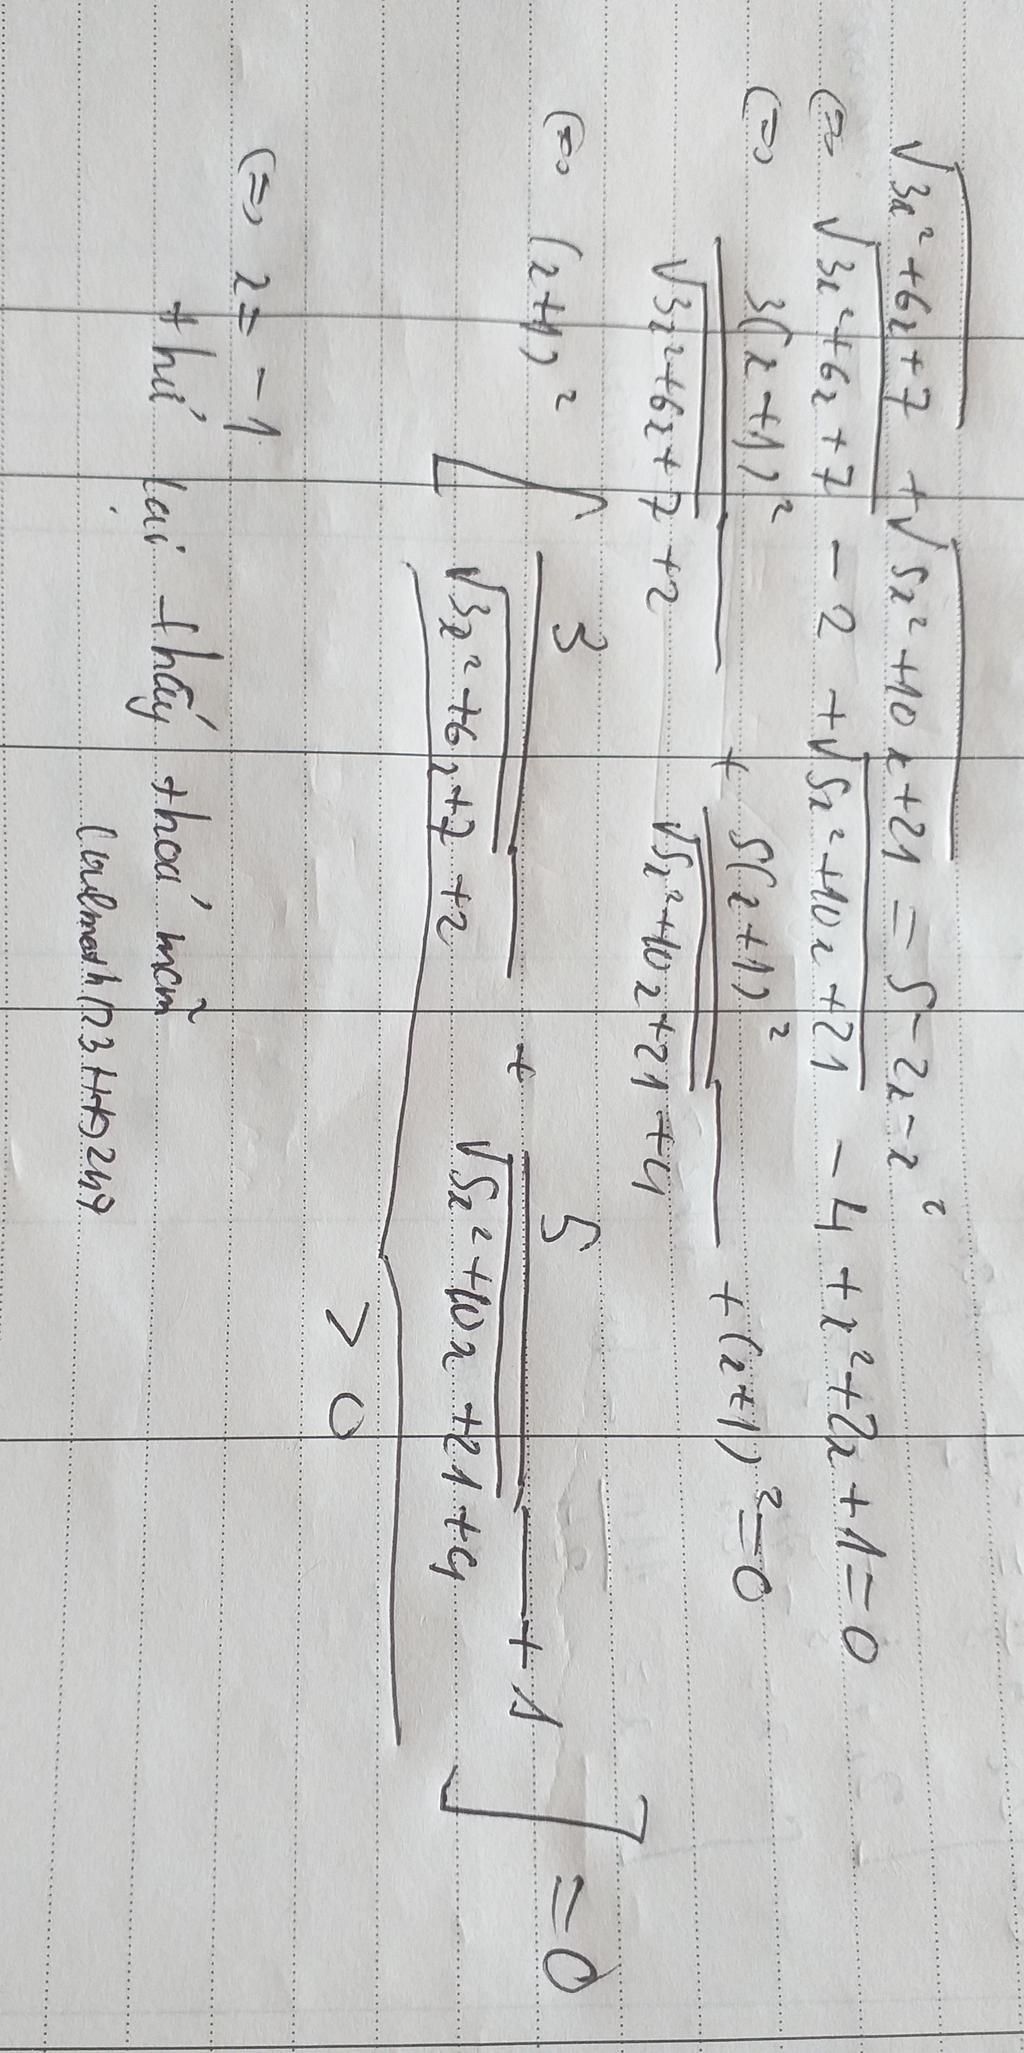 √3x²+6x+7 + √5x²+10x+21 = 5-2x-x²
(=) √3x²+6x+7 - 2 + √5x²+10x+21 - 4 + x²+2x+1=0
(=) 3(x+1)² / √3x²+6x+7 +2 + 5(x+1)² / √5x²+10x+21+4 + (x+1)²=0
(=) (x+1)² [ 3 / √3x²+6x+7 +2 + 5 / √5x²+10x+21+4 + 1 ] =0
> 0
(=) x = -1
thử lại thấy thoả mãn